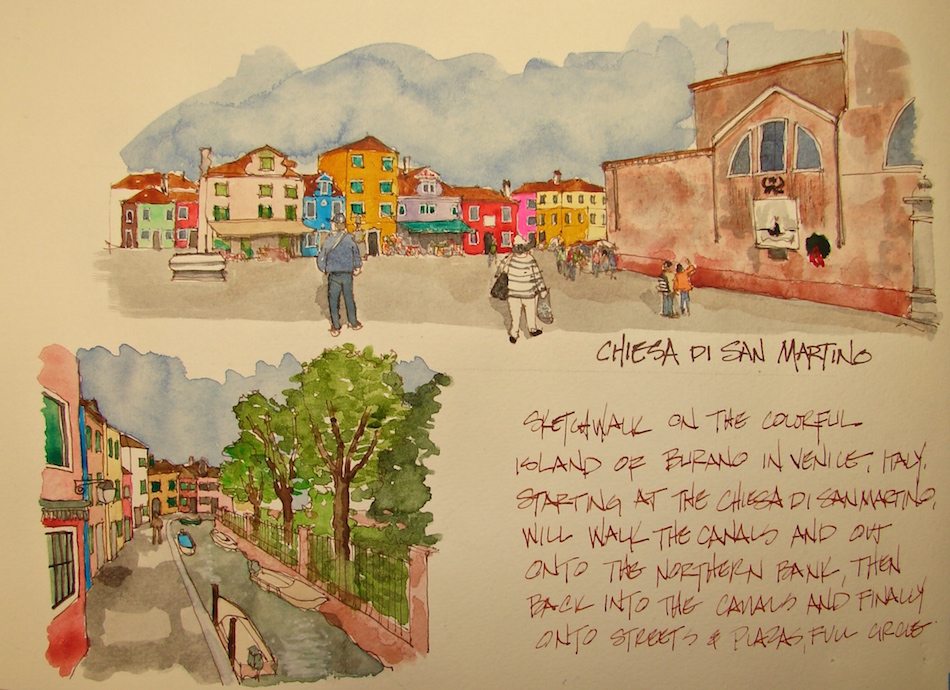 CHIESA DI SAN MARTINO
SKETCHWALK ON THE COLORFUL
ISLAND OF BURANO IN VENICE, ITALY.
STARTING AT THE CHIESA DI SAN MARTINO,
WILL WALK THE CANALS AND OUT
ONTO THE NORTHERN BANK, THEN
BACK INTO THE CANALS AND FINALLY
ONTO STREETS & PLAZAS, FULL CIRCLE